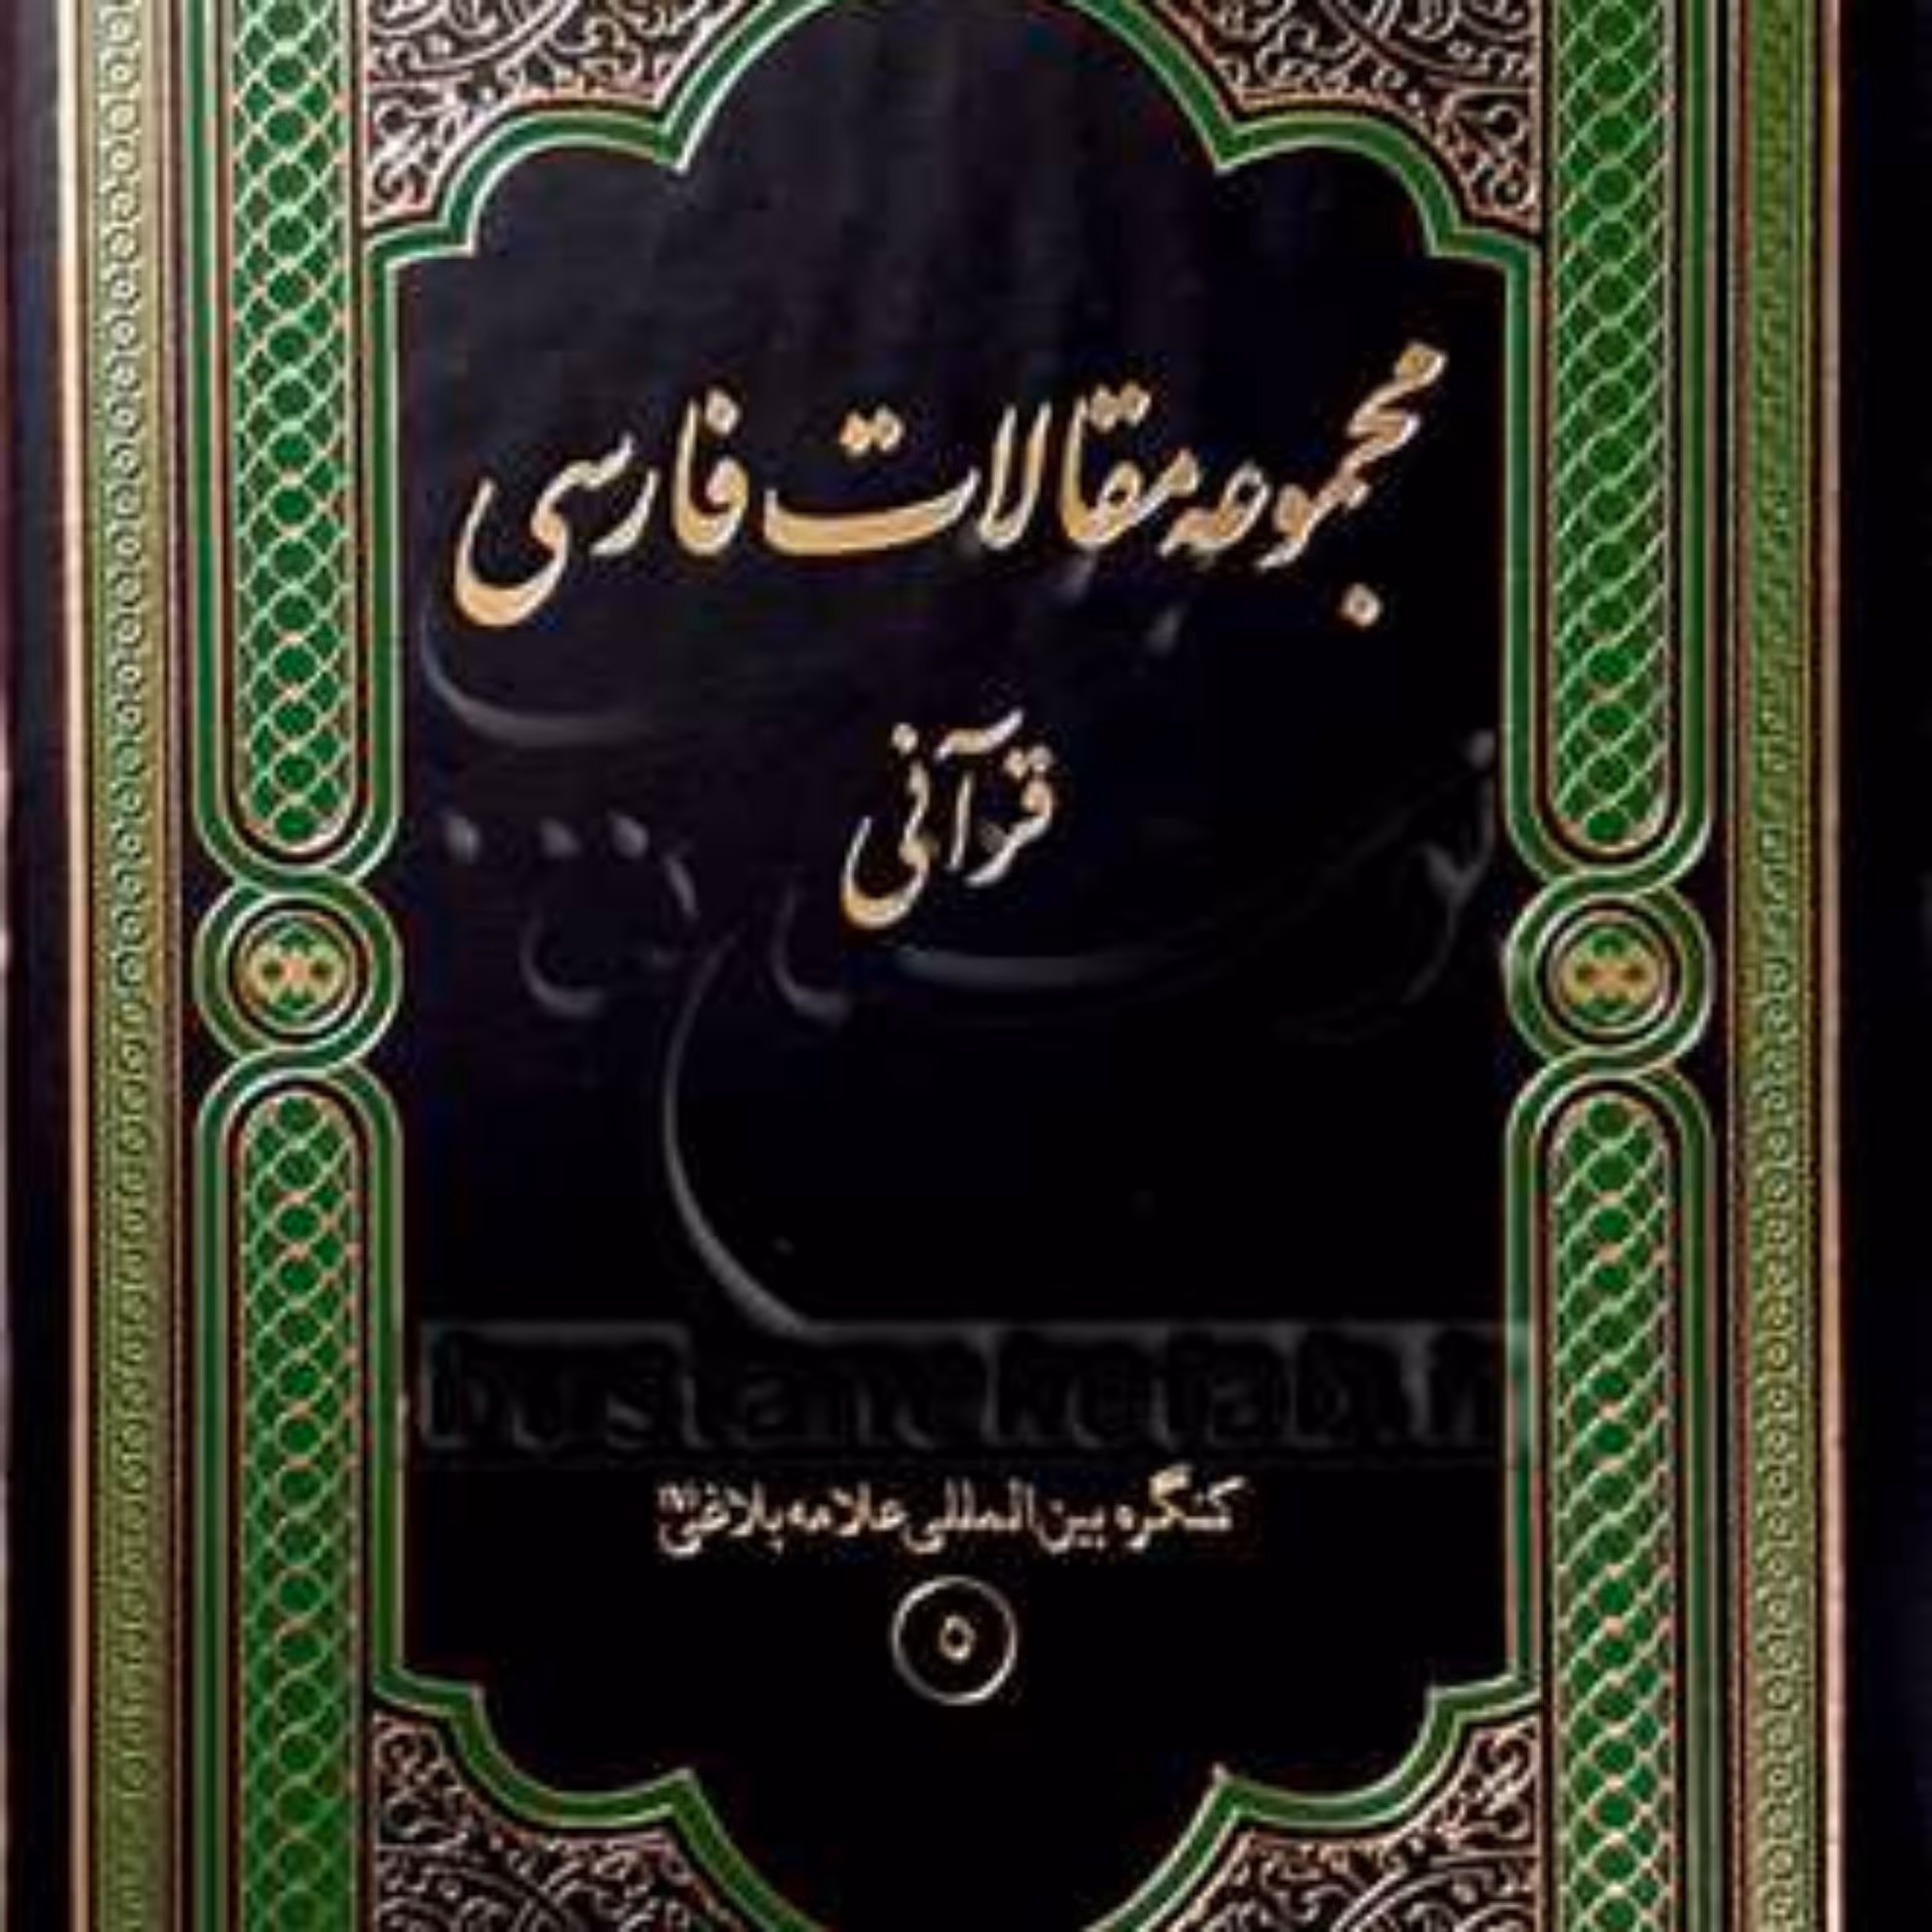 مجموعه مقالات فارسی
قرآنی
bustaneketab.ir
کنگره بین‌المللی علامه بلاغی
۵